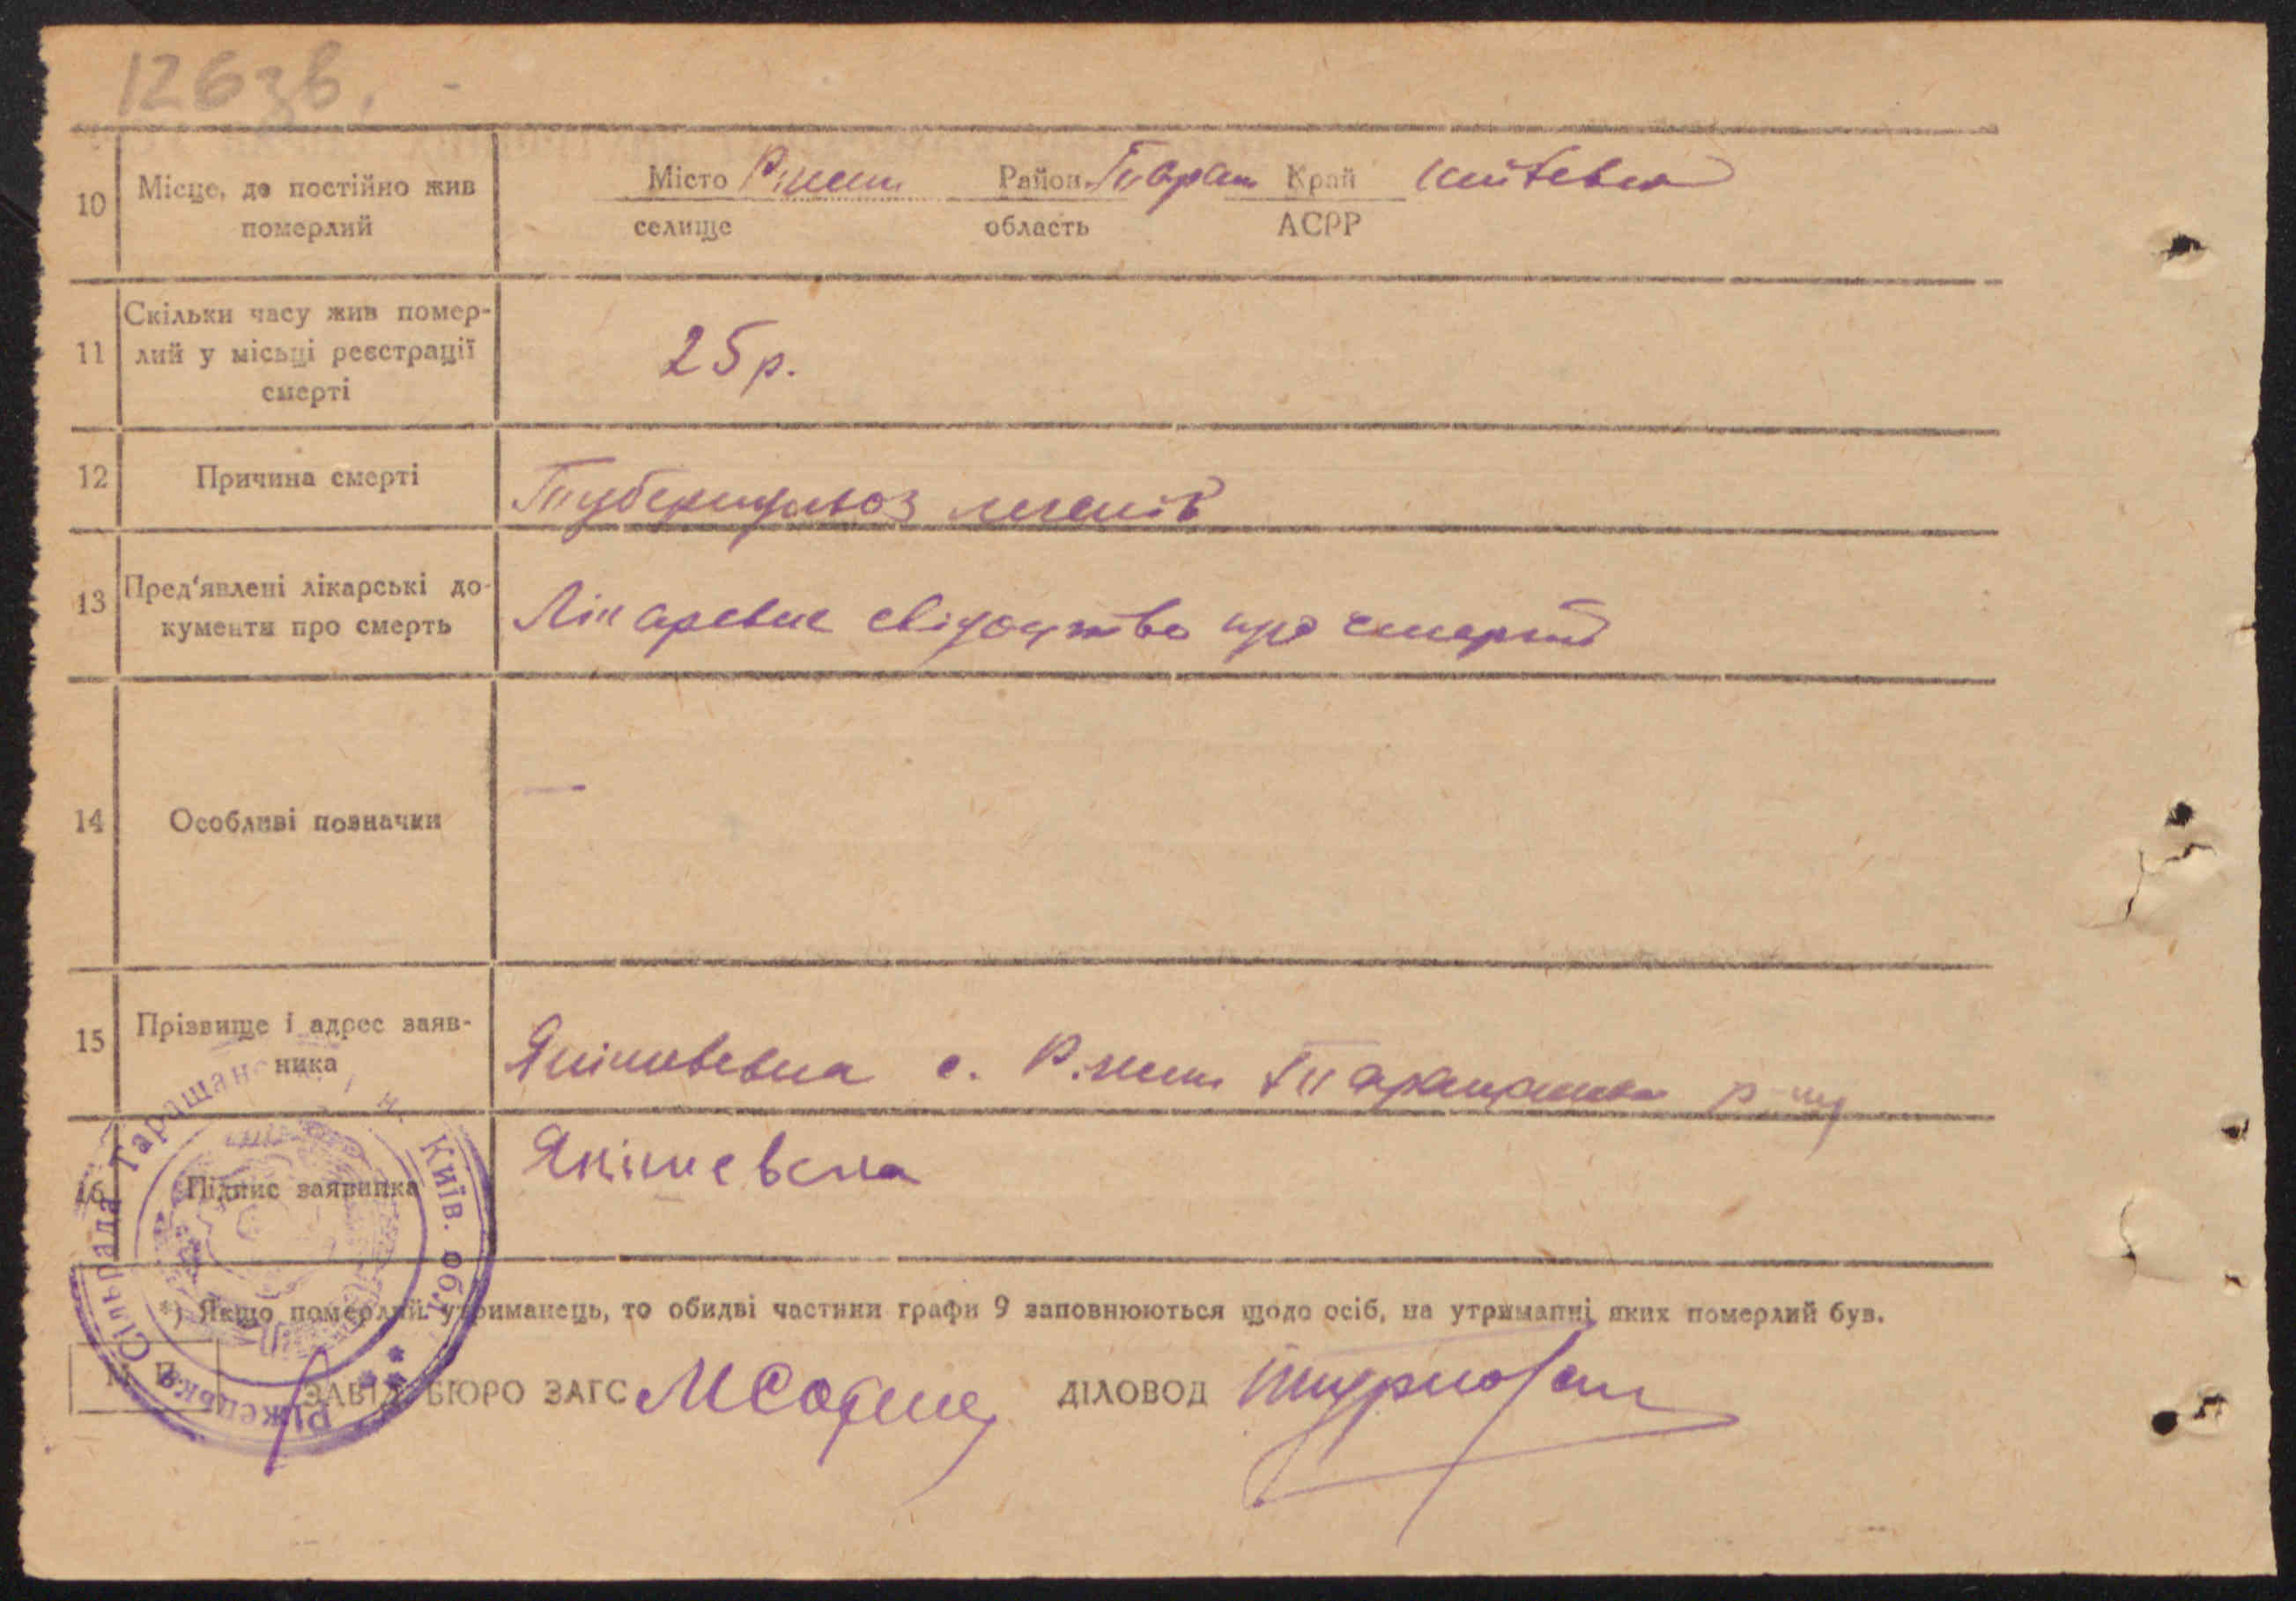 126зв.
10 Місце, де постійно жив померлий
Місто Район Таращ Край Київська
селище область АСРР
11 Скільки часу жив помер-
лий у місьці реєстрації
смерті
25 р.
12 Причина смерті Туберкульоз легенів
13 Пред'явлені лікарські до-
кументи про смерть
Лікарське свідоцтво про смерть
14 Особливі позначки —
15 Прізвище і адрес заяв-
ника
с. Таращанськ р-ну
16 Підпис заявника
*) Якщо померлий утриманець, то обидві частини графи 9 заповнюються щодо осіб, на утриманні яких померлий був.
М. П. ЗАВІД. БЮРО ЗАГС ДІЛОВОД
Сільрада Таращан Київ. обл.